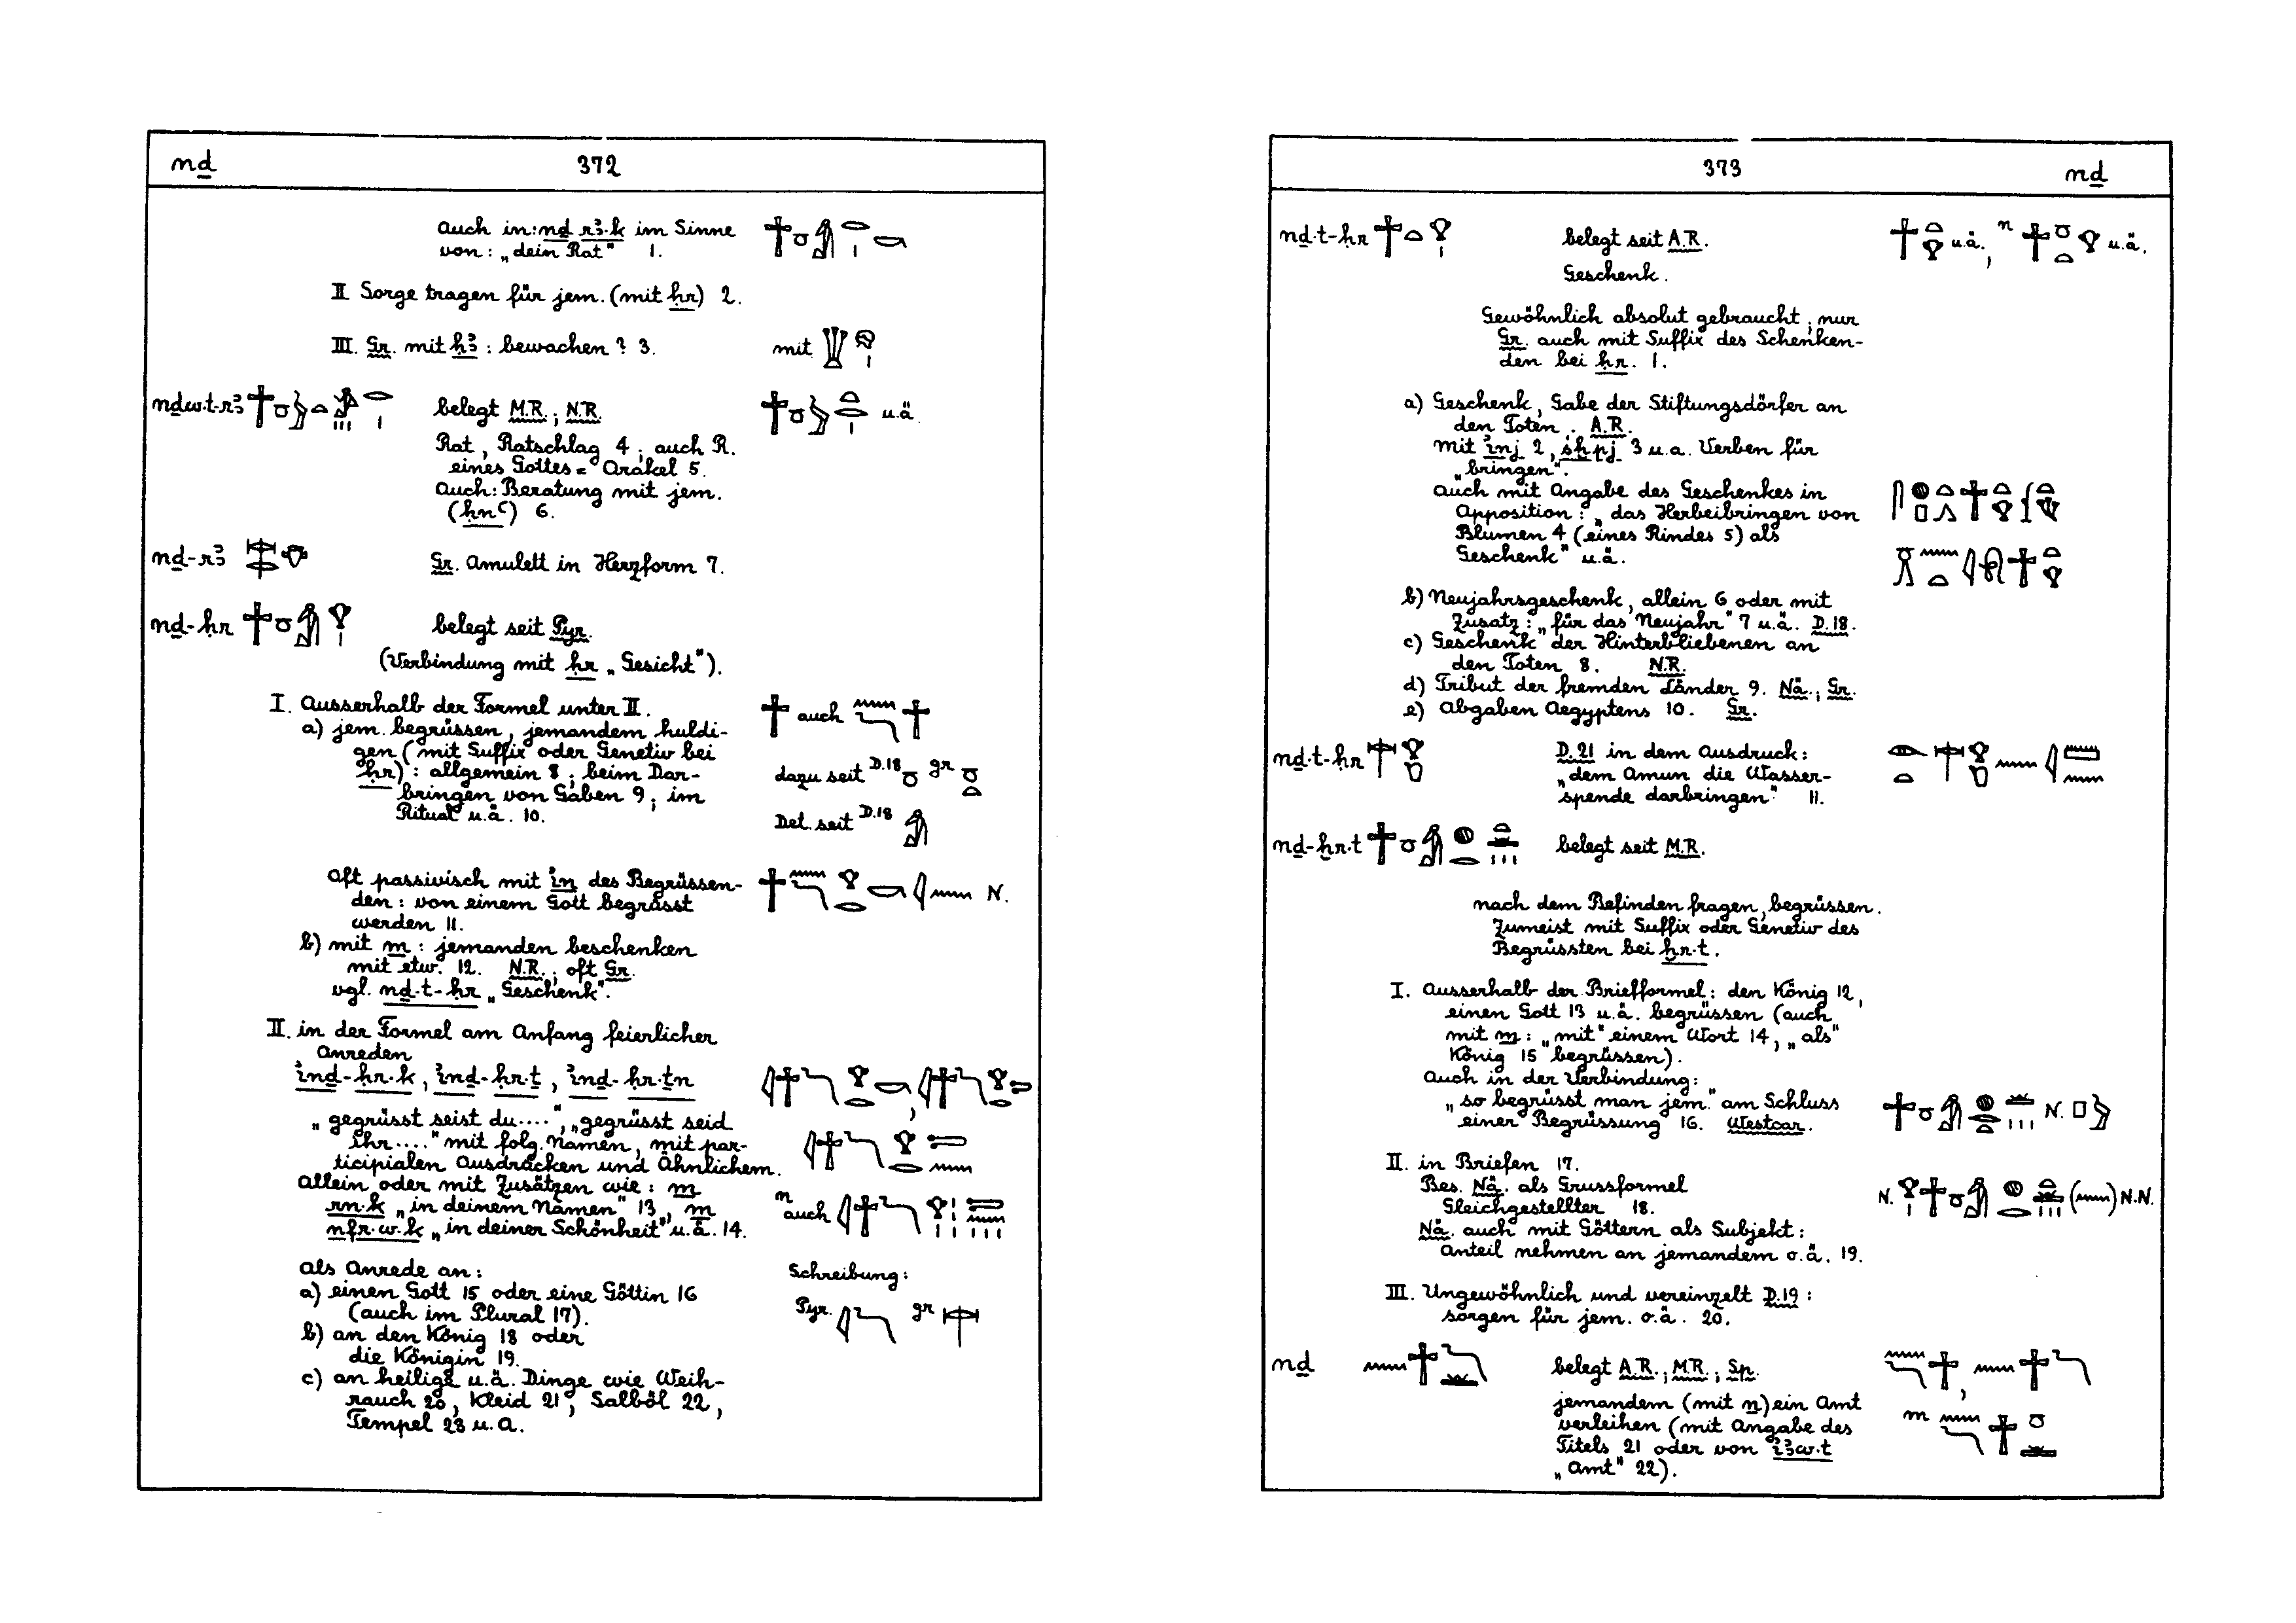 nḏ 372
auch in: nḏ r3·k im Sinne
von: „dein Rat" 1.
II Sorge tragen für jem. (mit ḥr) 2.
III. Gr. mit ḥ3 : bewachen ? 3. mit
nḏw·t-r3 belegt M.R.; N.R. u.ä.
Rat, Ratschlag 4; auch R.
eines Gottes = Orakel 5.
Auch: Beratung mit jem.
(ḥnꜥ) 6.
nḏ-r3 Gr. Amulett in Herzform 7.
nḏ-ḥr belegt seit Pyr.
(Verbindung mit ḥr „Gesicht").
I. Ausserhalb der Formel unter II. auch
a) jem. begrüssen, jemandem huldi-
gen (mit Suffix oder Genetiv bei
ḥr): allgemein 8; beim Dar- dazu seit D.18 gr
bringen von Gaben 9; im
Ritual u.ä. 10. Det. seit D.18
Oft passivisch mit in des Begrüssen- N.
den: von einem Gott begrüsst
werden 11.
b) mit m : jemanden beschenken
mit etw. 12. N.R.; oft Gr.
vgl. nḏ·t-ḥr „Geschenk".
II. in der Formel am Anfang feierlicher
Anreden
inḏ-ḥr·k, inḏ-ḥr·ṯ, inḏ-ḥr·ṯn ,
„gegrüsst seist du....", „gegrüsst seid
ihr...." mit folg. Namen, mit par-
ticipialen Ausdrücken und Ähnlichem.
Allein oder mit Zusätzen wie: m
rn·k „in deinem Namen" 13, m n auch
nfr·w·k „in deiner Schönheit" u.ä. 14.
Als Anrede an: Schreibung:
a) einen Gott 15 oder eine Göttin 16
(auch im Plural 17). Pyr. gr
b) an den König 18 oder
die Königin 19.
c) an heilige u.ä. Dinge wie Weih-
rauch 20, Kleid 21, Salböl 22,
Tempel 23 u. A.
373 nḏ
nḏ·t-ḥr belegt seit A.R. u.ä., n u.ä.
Geschenk.
Gewöhnlich absolut gebraucht; nur
Gr. auch mit Suffix des Schenken-
den bei ḥr. 1.
a) Geschenk, Gabe der Stiftungsdörfer an
den Toten. A.R.
Mit inj 2, sḫpj 3 u.a. Verben für
„bringen".
Auch mit Angabe des Geschenkes in
Apposition: „das Herbeibringen von
Blumen 4 (eines Rindes 5) als
Geschenk" u.ä.
b) Neujahrsgeschenk, allein 6 oder mit
Zusatz: „für das Neujahr" 7 u.ä. D.18.
c) Geschenk der Hinterbliebenen an
den Toten 8. N.R.
d) Tribut der fremden Länder 9. Nä.; Gr.
e) Abgaben Aegyptens 10. Gr.
nḏ·t-ḥr D.21 in dem Ausdruck:
„dem Amun die Wasser-
spende darbringen" 11.
nḏ-ḫr·t belegt seit M.R.
nach dem Befinden fragen, begrüssen.
Zumeist mit Suffix oder Genetiv des
Begrüssten bei ḫr·t.
I. Ausserhalb der Briefformel: den König 12,
einen Gott 13 u.ä. begrüssen (auch
mit m : „mit" einem Wort 14, „als"
König 15 begrüssen).
Auch in der Verbindung:
„so begrüsst man jem." am Schluss N.
einer Begrüssung 16. Westcar.
II. in Briefen 17.
Bes. Nä. als Grussformel N. ( ) N.N.
Gleichgestellter 18.
Nä. auch mit Göttern als Subjekt:
Anteil nehmen an jemandem o.ä. 19.
III. Ungewöhnlich und vereinzelt D.19 :
sorgen für jem. o.ä. 20.
nḏ belegt A.R.; M.R.; Sp. ,
jemandem (mit n) ein Amt
verleihen (mit Angabe des m
Titels 21 oder von i3w·t
„Amt" 22).